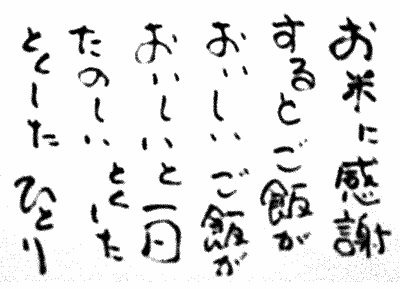 お米に感謝
するとご飯が
おいしいご飯が
おいしいと一日
たのしいとくした
とくしたひとり